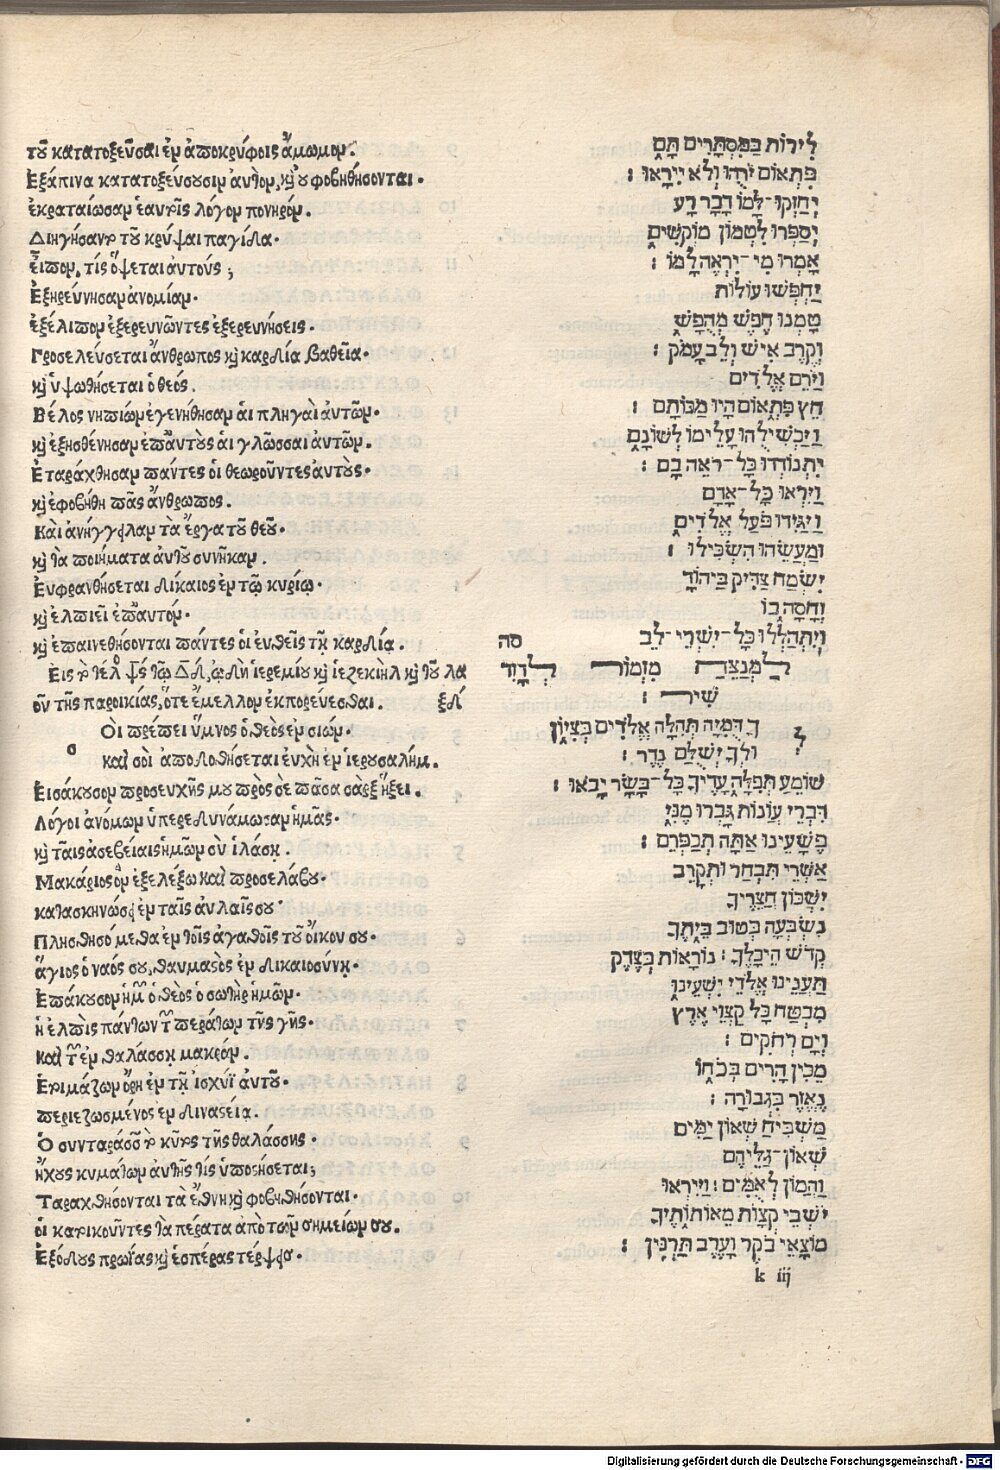 τοῦ κατατοξεῦσαι ἐν ἀποκρύφοις ἄμωμον.
Ἐξάπινα κατατοξεύσουσιν ἀυτὸν, καὶ ὀυ φοβηθήσονται·
ἐκραταίωσαν ἑαυτοῖς λόγον πονηρόν.
Διηγήσαντο τοῦ κρύψαι παγίδα·
εἶπον, τίς ὄψεται ἀυτούς;
Ἐξηρεύνησαν ἀνομίαν·
ἐξέλιπον ἐξερευνῶντες ἐξερευνήσεις·
Προσελεύσεται ἄνθρωπος καὶ καρδία βαθεῖα·
καὶ ὑψωθήσεται ὁ θεός.
Βέλος νηπίων ἐγενήθησαν ἁι πληγαὶ ἀυτῶν·
καὶ ἐξησθένησαν ἐπ' ἀυτοὺς ἁι γλῶσσαι ἀυτῶν.
Ἐταράχθησαν πάντες ὁι θεωροῦντες ἀυτούς·
καὶ ἐφοβήθη πᾶς ἄνθρωπος.
Καὶ ἀνήγγειλαν τὰ ἔργα τοῦ θεοῦ·
καὶ τὰ ποιήματα ἀυτοῦ συνῆκαν.
Ἐυφρανθήσεται δίκαιος ἐν τῷ κυρίῳ·
καὶ ἐλπιεῖ ἐπ' ἀυτόν·
καὶ ἐπαινεθήσονται πάντες ὁι ἐυθεῖς τῇ καρδίᾳ.
Εἰς τὸ τέλος ψαλμὸς τῷ Δαδ, ᾠδὴ ἱερεμίου καὶ ἱεζεκιὴλ καὶ τοῦ λα
οῦ τῆς παροικίας, ὅτε ἔμελλον ἐκπορεύεσθαι. ξδ
Σοὶ πρέπει ὕμνος ὁ θεὸς ἐν σιών·
καὶ σοὶ ἀποδοθήσεται ἐυχὴ ἐν ἱερουσαλήμ.
Εἰσάκουσον προσευχῆς μου πρὸς σὲ πᾶσα σὰρξ ἥξει.
Λόγοι ἀνόμων ὑπερεδυνάμωσαν ἡμᾶς·
καὶ ταῖς ἀσεβείαις ἡμῶν σὺ ἱλάσῃ.
Μακάριος ὃν ἐξελέξω καὶ προσελάβου·
κατασκηνώσει ἐν ταῖς ἀυλαῖς σου·
Πλησθησόμεθα ἐν τοῖς ἀγαθοῖς τοῦ ὄικου σου·
ἅγιος ὁ ναός σου, θαυμαστὸς ἐν δικαιοσύνῃ·
Ἐπάκουσον ἡμῶν ὁ θεὸς ὁ σωτὴρ ἡμῶν·
ἡ ἐλπὶς πάντων τῶν περάτων τῆς γῆς·
καὶ τῶν ἐν θαλάσσῃ μακράν.
Ἑτοιμάζων ὄρη ἐν τῇ ἰσχύϊ ἀυτοῦ·
περιεζωσμένος ἐν δυναστείᾳ.
Ὁ συνταράσσων τὸ κῦτος τῆς θαλάσσης·
ἤχους κυμάτων ἀυτῆς τίς ὑποστήσεται;
Ταραχθήσονται τὰ ἔθνη καὶ φοβηθήσονται·
ὁι κατοικοῦντες τὰ πέρατα ἀπὸ τῶν σημείων σου.
Ἐξόδους πρωΐας καὶ ἑσπέρας τέρψεις·
לִירוֹת בַּמִּסְתָּרִים תָּם
פִּתְאוֹם יֹרֻהוּ וְלֹא יִירָאוּ׃
יְחַזְּקוּ־לָמוֹ דָּבָר רָע
יְסַפְּרוּ לִטְמוֹן מוֹקְשִׁים
אָמְרוּ מִי־יִרְאֶה לָּמוֹ׃
יַחְפְּשׂוּ עוֹלוֹת
טָמְנוּ חֵפֶשׂ מְחֻפָּשׂ
וְקֶרֶב אִישׁ וְלֵב עָמֹק׃
וַיֹּרֵם אֱלֹדִים
חֵץ פִּתְאוֹם הָיוּ מַכּוֹתָם׃
וַיַּכְשִׁילֻהוּ עָלֵימוֹ לְשׁוֹנָם
יִתְנוֹדְדוּ כָּל־רֹאֵה בָם׃
וַיִּרְאוּ כָּל־אָדָם
וַיַּגִּידוּ פֹּעַל אֱלֹדִים
וּמַעֲשֵׂהוּ הִשְׂכִּילוּ׃
יִשְׂמַח צַדִּיק בַּיהוָֹד
וְחָסָה בוֹ
וְיִתְהַלְלוּ כָּל־יִשְׁרֵי־לֵב סה
לַמְנַצֵּחַ מִזְמוֹר לְדָוִד
שִׁיר׃
לְךָ דֻמִיָּה תְהִלָּה אֱלֹדִים בְּצִיּוֹן
וּלְךָ יְשֻׁלַּם נֶדֶר׃
שׁוֹמֵעַ תְּפִלָּה עָדֶיךָ כָּל־בָּשָׂר יָבֹאוּ׃
דִּבְרֵי עֲוֹנוֹת גָּבְרוּ מֶנִּי
פְּשָׁעֵינוּ אַתָּה תְכַפְּרֵם׃
אַשְׁרֵי תִּבְחַר וּתְקָרֵב
יִשְׁכּוֹן חֲצֵרֶיךָ
נִשְׂבְּעָה בְּטוּב בֵּיתֶךָ
קְדֹשׁ הֵיכָלֶךָ׃ נוֹרָאוֹת בְּצֶדֶק
תַּעֲנֵינוּ אֱלֹדֵי יִשְׁעֵינוּ
מִבְטַח כָּל קַצְוֵי אֶרֶץ
וְיָם רְחֹקִים׃
מֵכִין הָרִים בְּכֹחוֹ
נֶאְזָר בִּגְבוּרָה׃
מַשְׁבִּיחַ שְׁאוֹן יַמִּים
שְׁאוֹן־גַּלֵּיהֶם
וַהֲמוֹן לְאֻמִּים׃ וַיִּירְאוּ
יֹשְׁבֵי קְצָוֹת מֵאוֹתוֹתֶיךָ
מוֹצָאֵי בֹקֶר וָעֶרֶב תַּרְנִין׃
k iij
Digitalisierung gefördert durch die Deutsche Forschungsgemeinschaft - DFG